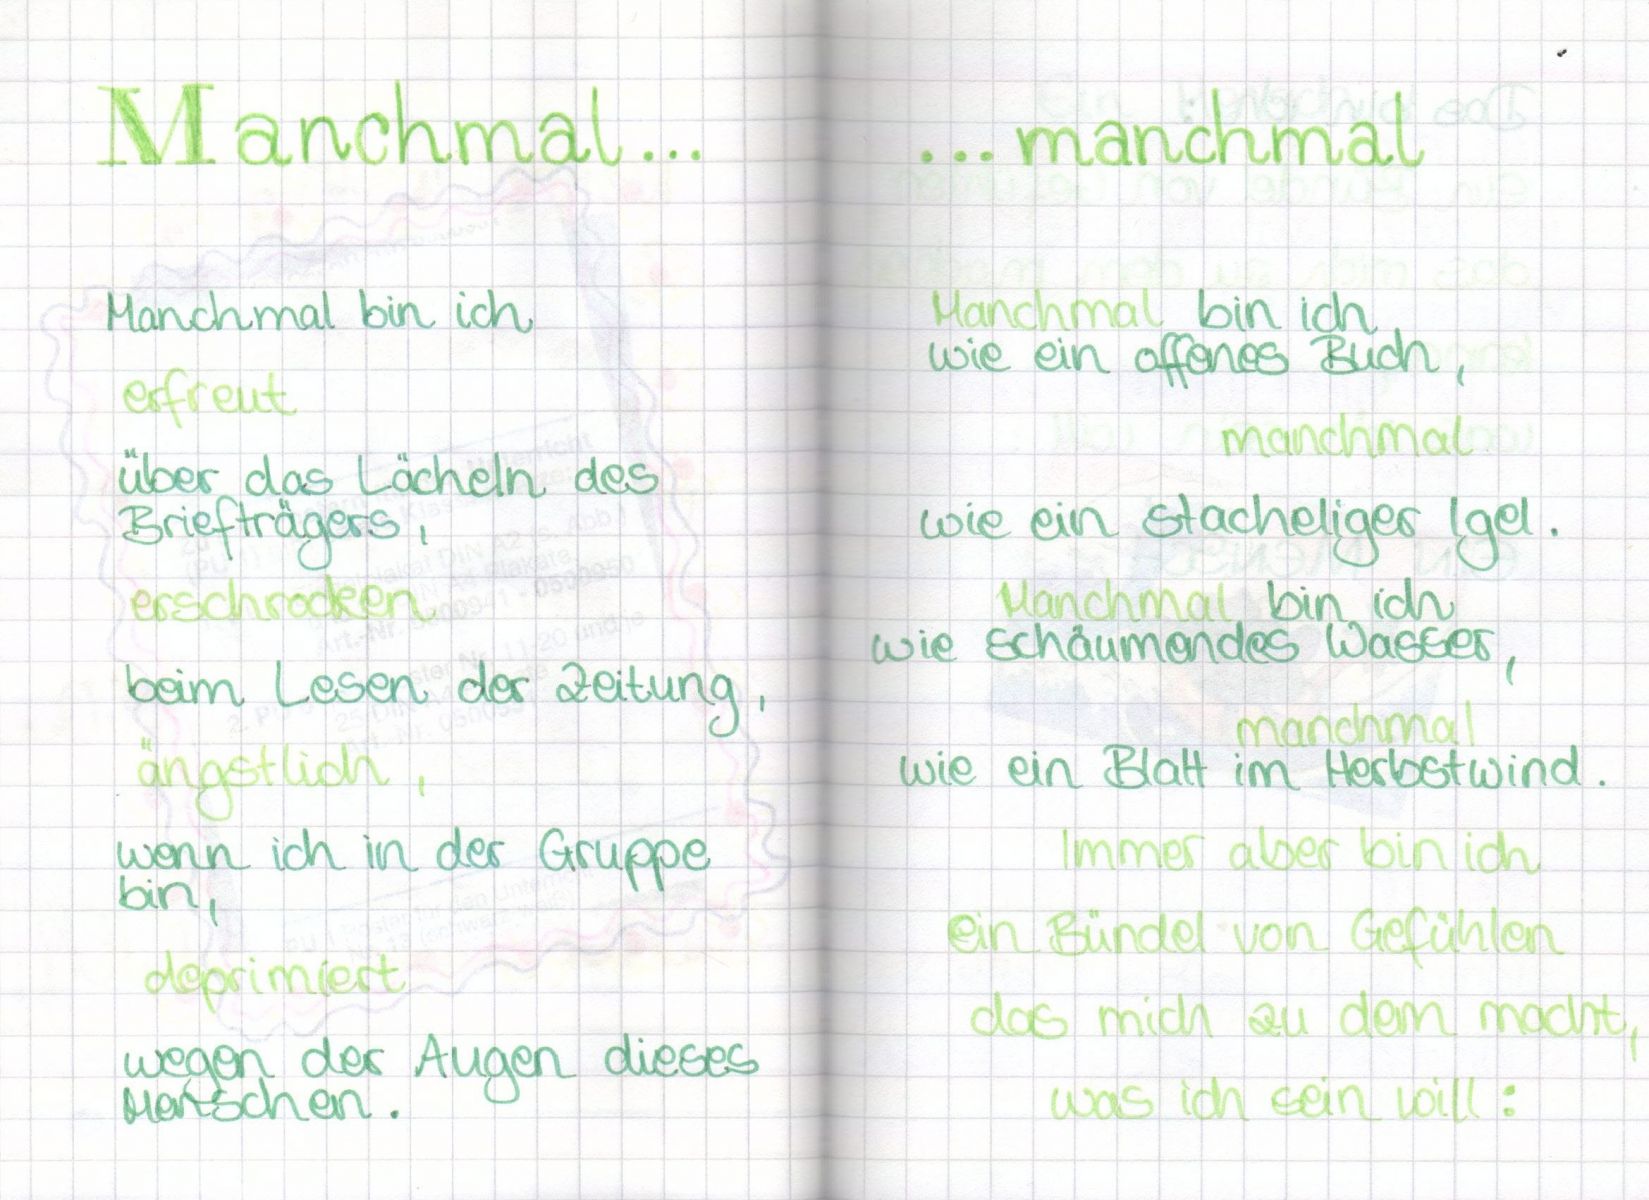 Manchmal...
Manchmal bin ich
erfreut
über das Lächeln des
Briefträgers,
erschrocken
beim Lesen der Zeitung,
ängstlich,
wenn ich in der Gruppe
bin,
deprimiert
wegen der Augen dieses
Menschen.
...manchmal
Manchmal bin ich
wie ein offenes Buch,
manchmal
wie ein stacheliger Igel.
Manchmal bin ich
wie schäumendes Wasser,
manchmal
wie ein Blatt im Herbstwind.
Immer aber bin ich
ein Bündel von Gefühlen
das mich zu dem macht,
was ich sein will: